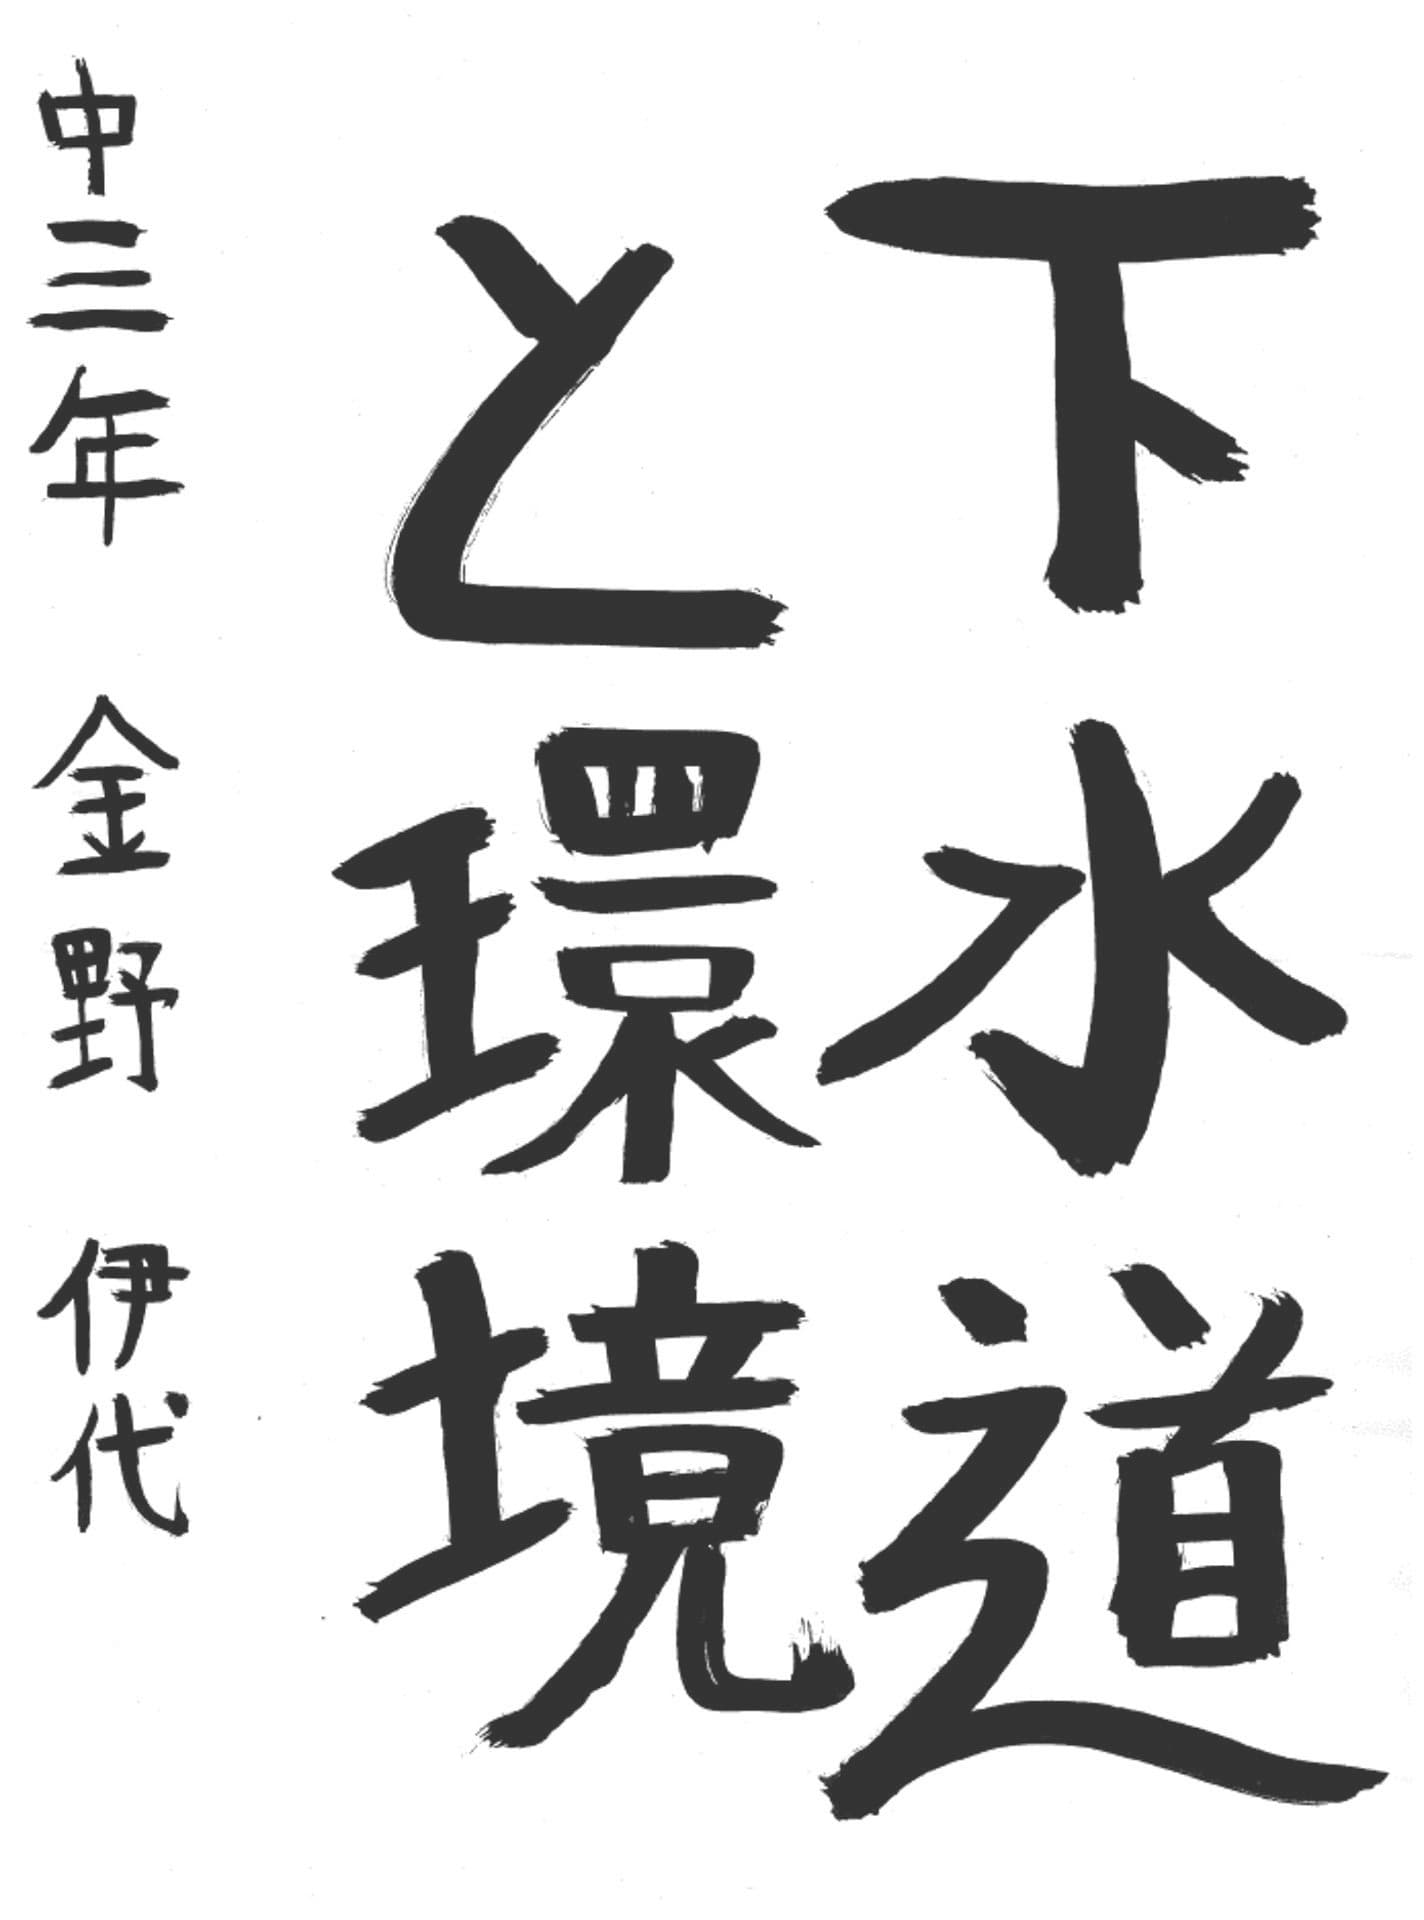 下水道
と環境
中三年 金野 伊代